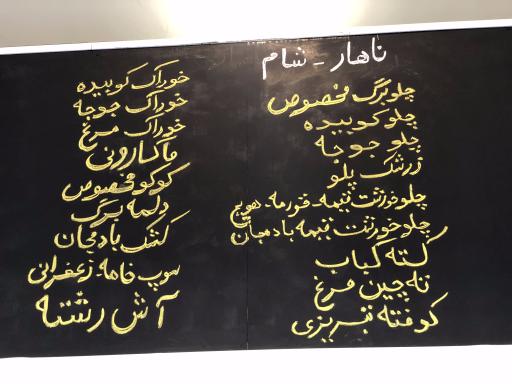 ناهار - شام
چلو برگ مخصوص
چلو کوبیده
چلو جوجه
زرشک پلو
چلو خورشت قیمه - قورمه - هویج
چلو خورشت قیمه بادمجان
لته کباب
ته چین مرغ
کوفته تبریزی
خوراک کوبیده
خوراک جوجه
خوراک مرغ
ماکارونی
کوکو مخصوص
دلمه برگ
کشک بادمجان
سوپ خامه زعفرانی
آش رشته